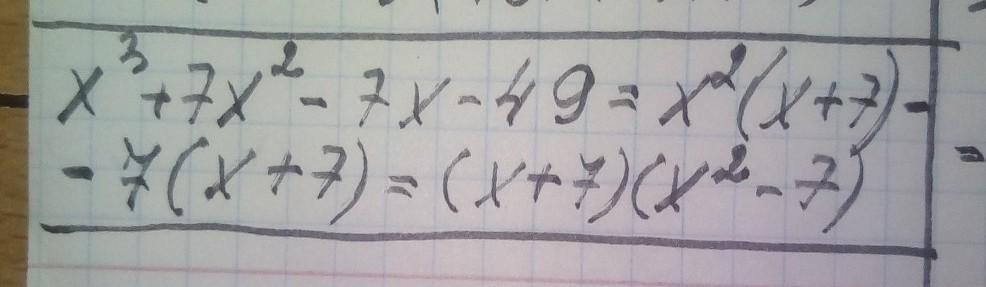 x³+7x²-7x-49=x²(x+7)-
-7(x+7)=(x+7)(x²-7)
=